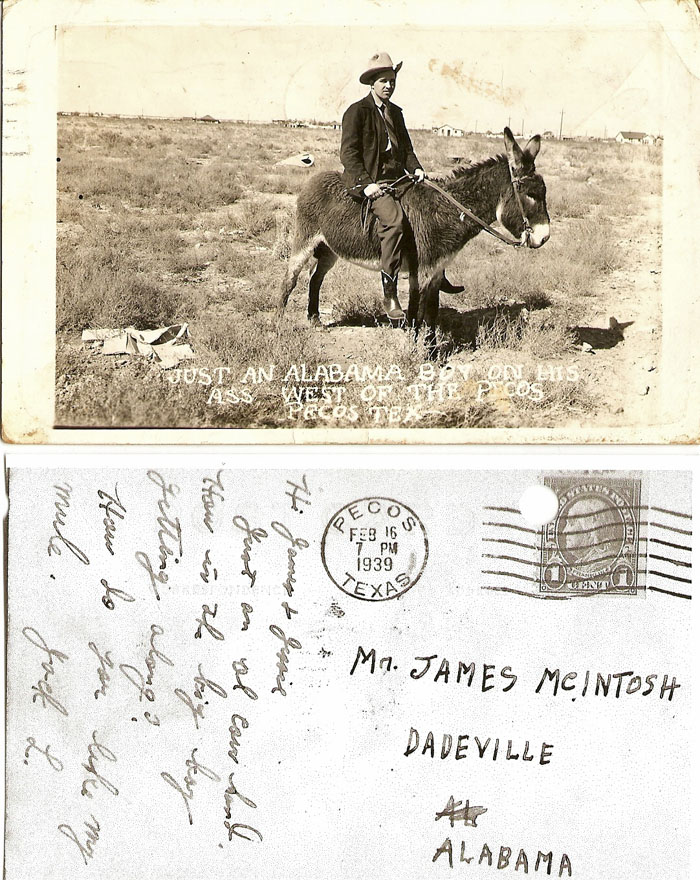 JUST AN ALABAMA BOY ON HIS
ASS WEST OF THE PECOS
PECOS TEX
Hi James & Jessie
Just an ol cow hand.
How is the big boy
getting along?
How do you like my
mule.
Jack L.
PECOS
FEB 16
7 PM
1939
TEXAS
UNITED STATES
1 CENT 1
Mr. JAMES MCINTOSH
DADEVILLE
ALABAMA